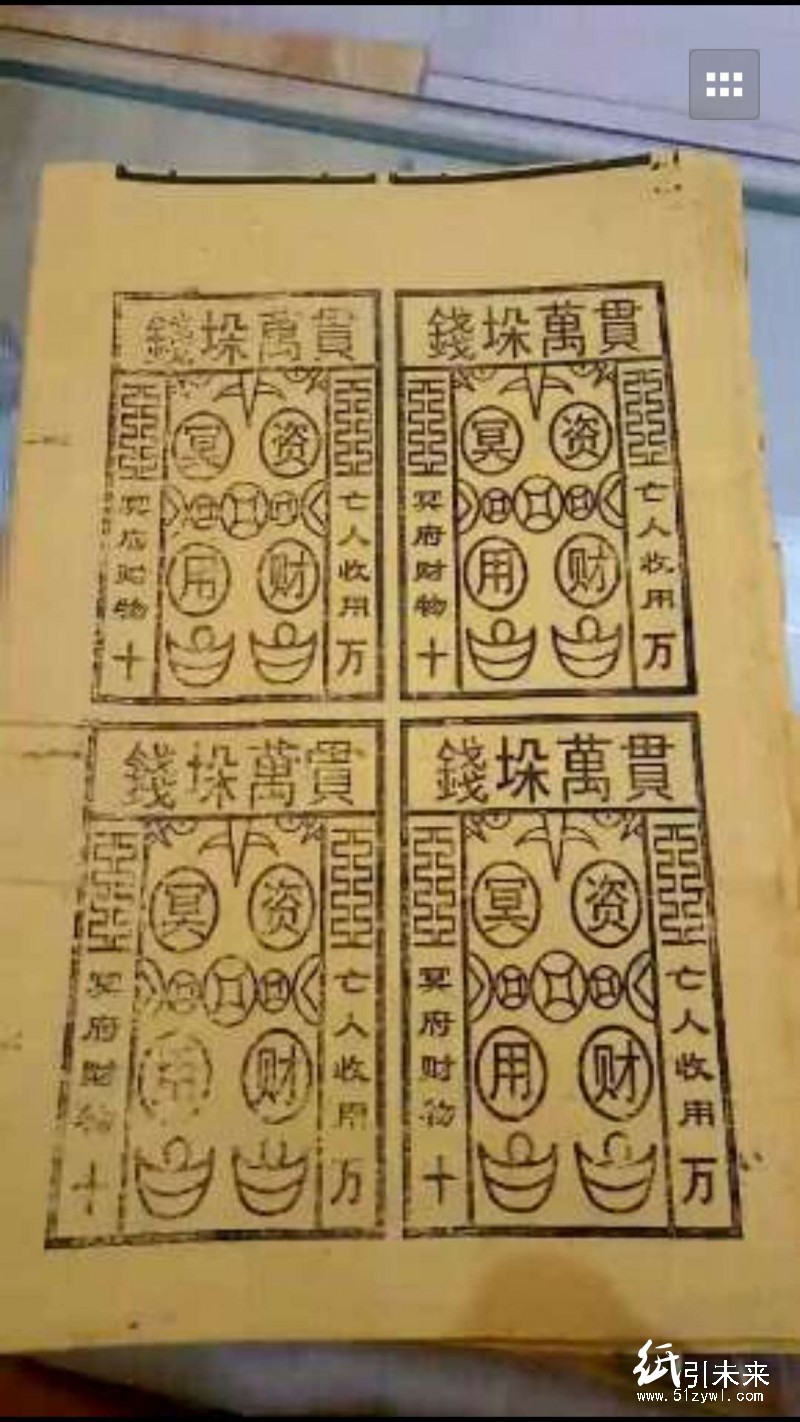 錢垛萬貫
冥资
用财
冥府财物
亡人收用
十万
錢垛萬貫
冥资
用财
冥府财物
亡人收用
十万
錢垛萬貫
冥资
用财
冥府财物
亡人收用
十万
錢垛萬貫
冥资
用财
冥府财物
亡人收用
十万
纸引未来
www.51zywl.com